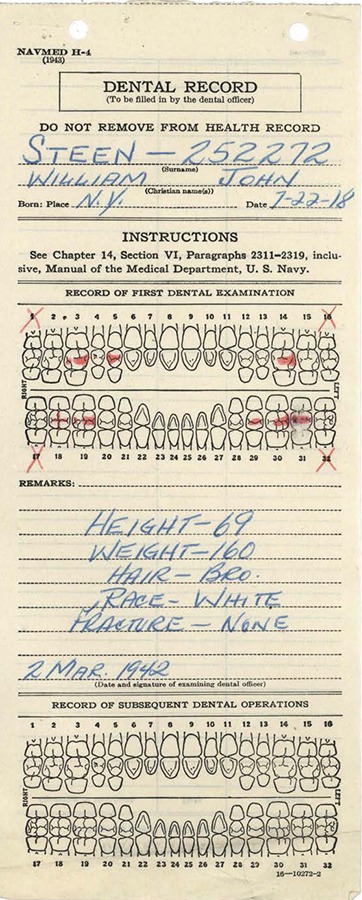 NAVMED H-4
(1943)
DENTAL RECORD
(To be filled in by the dental officer)
DO NOT REMOVE FROM HEALTH RECORD
STEEN — 252272
(Surname)
WILLIAM JOHN
(Christian name(s))
Born: Place N.Y. Date 7-22-18
INSTRUCTIONS
See Chapter 14, Section VI, Paragraphs 2311–2319, inclu-
sive, Manual of the Medical Department, U. S. Navy.
RECORD OF FIRST DENTAL EXAMINATION
1 2 3 4 5 6 7 8 9 10 11 12 13 14 15 16
RIGHT LEFT
17 18 19 20 21 22 23 24 25 26 27 28 29 30 31 32
REMARKS:
HEIGHT - 69
WEIGHT - 160
HAIR - BRO.
RACE - WHITE
FRACTURE - NONE
2 MAR. 1942
(Date and signature of examining dental officer)
RECORD OF SUBSEQUENT DENTAL OPERATIONS
1 2 3 4 5 6 7 8 9 10 11 12 13 14 15 16
RIGHT LEFT
17 18 19 20 21 22 23 24 25 26 27 28 29 30 31 32
16—10272-2